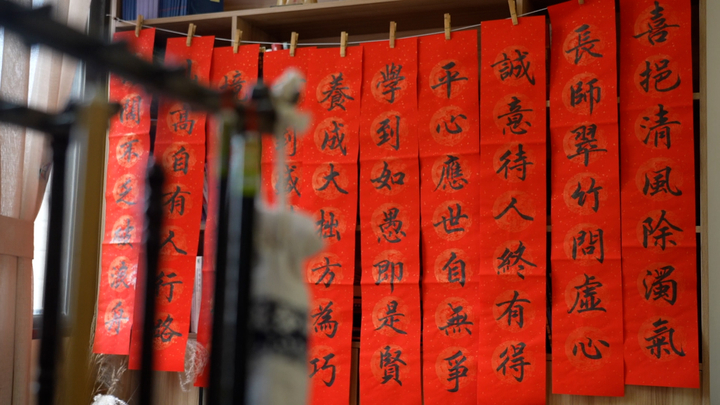 喜挹清風除濁氣
長師翠竹問虛心
誠意待人終有得
平心應世自無爭
學到如愚即是賢
養成大拙方為巧
高自有人行路